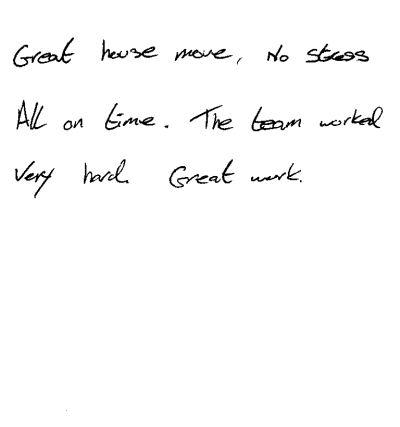 Great house move, No stress
All on time. The team worked
Very hard. Great work.